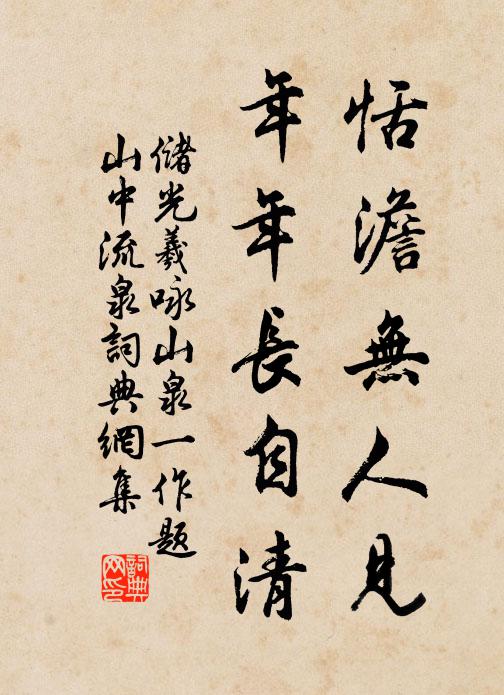 恬澹無人見
年年長自清
儲光羲咏山泉一作題
山中流泉詞典網集
詞典网印